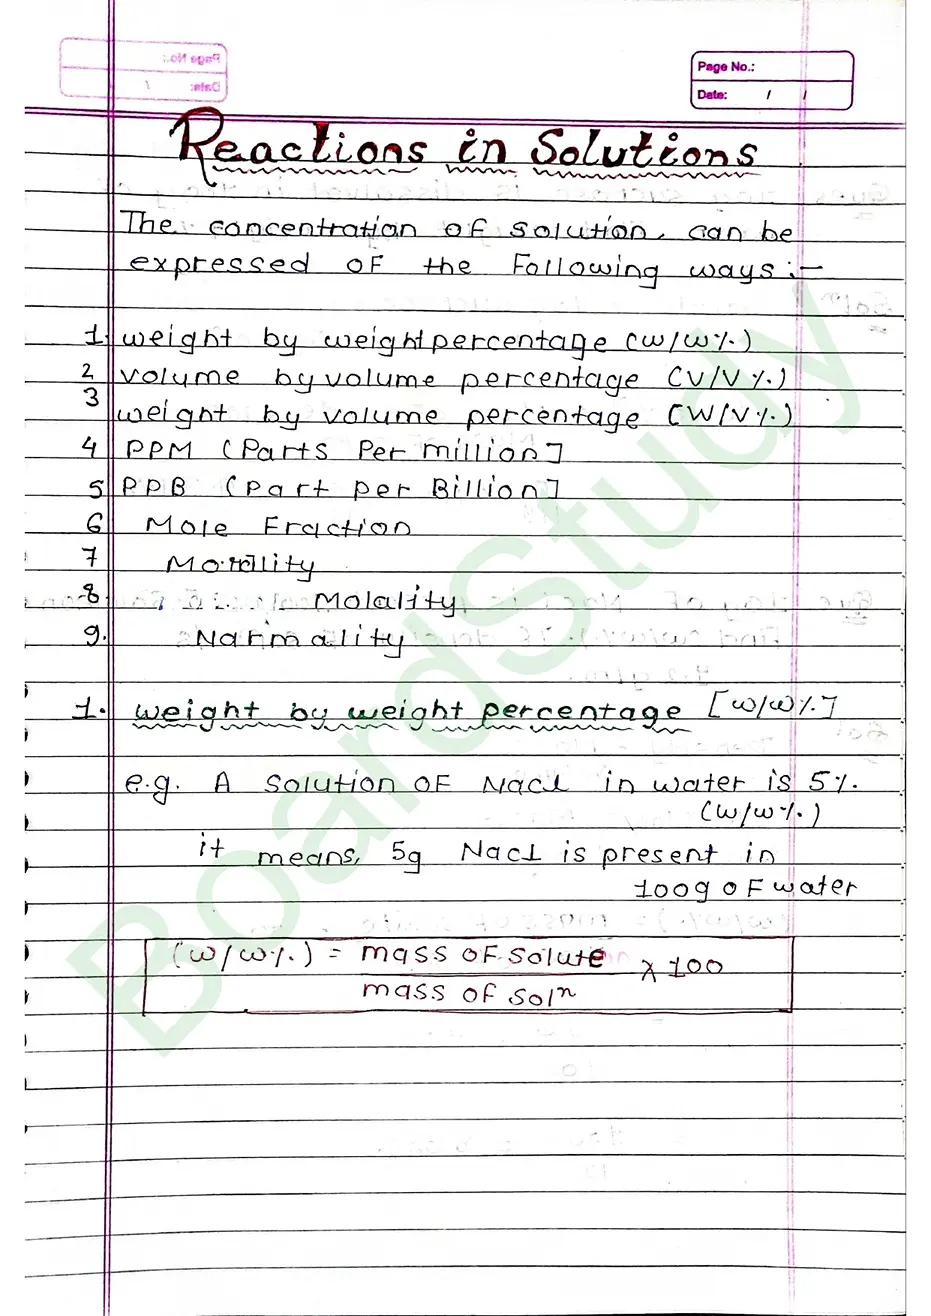 Page No.:
Date: / /
Reactions in Solutions
The concentration of solution, can be
expressed of the following ways :-
1. weight by weight percentage (w/w %)
2 volume by volume percentage (V/V %)
3 weight by volume percentage (W/V %)
4 PPM (Parts Per million]
5 PPB (Part per Billion]
6 Mole Fraction
7 Molality
8 Molality
9. Normality
1. weight by weight percentage [w/w %]
e.g. A solution of Nacl in water is 5 %.
(w/w %)
it means, 5g Nacl is present in
100g of water
(w/w %) = mass of solute
x 100
mass of solⁿ
BoardStudy